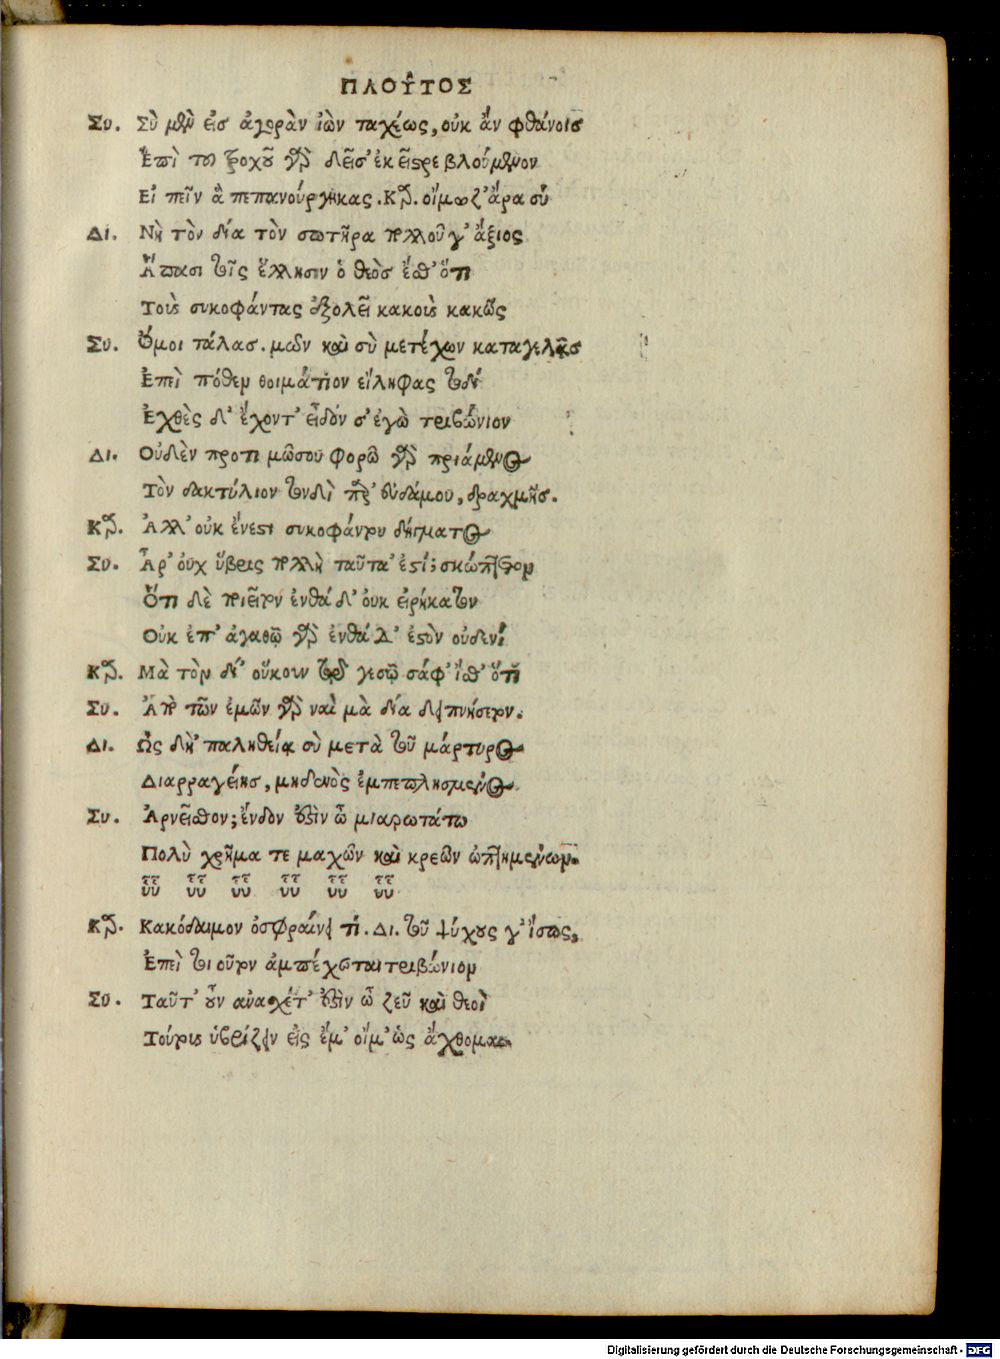 ΠΛΟΥ͂ΤΟΣ
Συ. Σὺ μὲν εἰσ ἀγορὰν ἰὼν ταχέως, οὐκ ἂν φθάνοισ
Ἐπὶ του τροχοῦ γὰρ δεῖσ' ἐκεῖ στρεβλούμενον
Εἰ πεῖν ἃ πεπανούργηκας. Καρ. οἴμωζ' ἄρα σὺ
Δι. Νὴ τὸν δία τὸν σωτῆρα πολλοῦ γ' ἄξιος
Ἅπασι τοῖς ἕλλησιν ὁ θεὸσ ἔσθ' ὅτι
Τοὺς συκοφάντας ἐξολεῖ κακοὺς κακῶς
Συ. Οἴμοι τάλασ. μῶν καὶ σὺ μετέχων καταγελᾶσ
Ἐπεὶ πόθεν θοιμάτιον εἴληφας τοδί
Ἐχθὲς δ' ἔχοντ' εἶδόν σ' ἐγὼ τριβώνιον
Δι. Οὐδὲν προτιμῶσου φορῶ γὰρ πριάμενος
Τὸν δακτύλιον τονδὶ παρ' εὐδάμου, δραχμῆσ.
Καρ. Ἀλλ' οὐκ ἔνεστι συκοφάντου δήγματος
Συ. Ἆρ' οὐχ ὕβρις πολλὴ ταῦτα' ἐστί; σκώπτετον
Ὅτι δὲ ποιεῖτον ἐνθάδ' οὐκ εἰρήκατον
Οὐκ ἐπ' ἀγαθῷ γὰρ ἐνθάδ' ἐστὸν οὐδενί
Καρ. Μὰ τὸν δί' οὔκουν τῷ γεσῷ σάφ' ἴσθ' ὅτι
Συ. Ἀπὸ τῶν ἐμῶν γὰρ ναὶ μὰ δία δειπνήσετον.
Δι. Ὡς δὴ' παληθείᾳ σὺ μετὰ τοῦ μάρτυρος
Διαρραγείησ, μηδενὸς ἐμπεπλησμένος
Συ. Ἀρνεῖσθον; ἔνδον ἐστὶν ὦ μιαρωτάτω
Πολὺ χρῆμα τεμαχῶν καὶ κρεῶν ὠπτημένων.
ὗὗ ὗὗ ὗὗ ὗὗ ὗὗ ὗὗ
Καρ. Κακόδαιμον ὀσφραίνει τί. Δι. τοῦ ψύχους γ' ἴσως,
Ἐπεὶ τοιοῦτον ἀμπέχεται τριβώνιον
Συ. Ταῦτ' οὖν ἀνασχέτ' ἐστὶν ὦ ζεῦ καὶ θεοὶ
Τούτους ὑβρίζειν εἰς ἔμ' οἴμ' ὡς ἄχθομαι
Digitalisierung gefördert durch die Deutsche Forschungsgemeinschaft - DFG